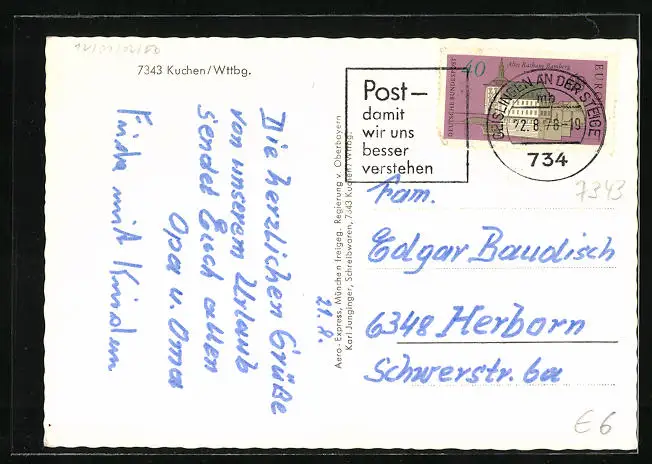 14/01/02/50
7343 Kuchen/Wttbg.
Post–
damit
wir uns
besser
verstehen
DEUTSCHE BUNDESPOST
40
Altes Rathaus Bamberg
EUROPA
GEISLINGEN AN DER STEIGE
mb
22.8.78-19
734
7343
21.8.
Die herzlichen Grüße
von unserem Urlaub
sendet Euch allen
Opa u. Oma
Frida mit Kindern
Aero-Express, München freigeg. Regierung v. Oberbayern
Karl Junginger, Schreibwaren, 7343 Kuchen/Wttbg.
Fam.
Edgar Baudisch
6348 Herborn
Schwerstr. 6a
€6